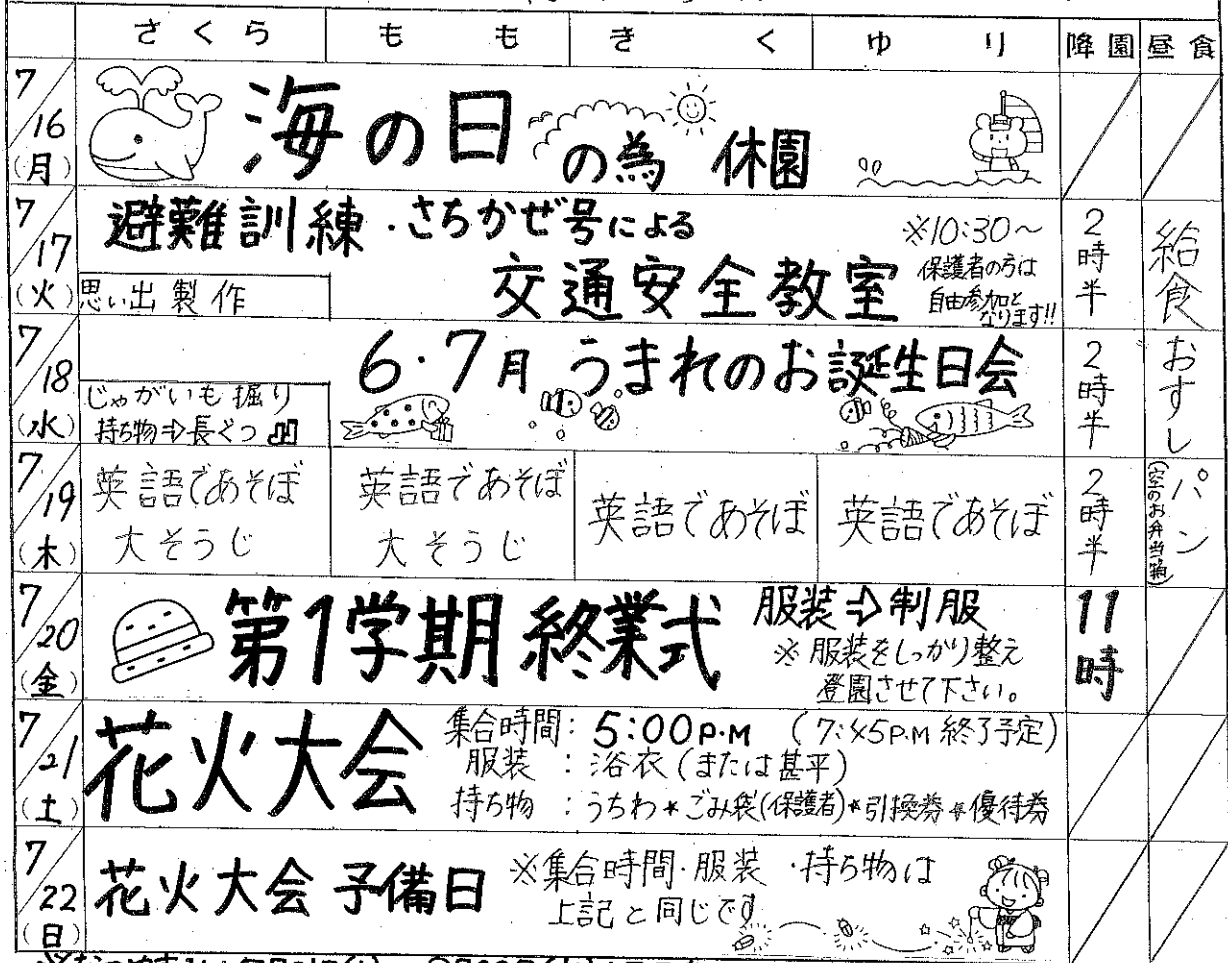 さくら もも きく ゆり 降園 昼食
7/16(月) 海の日の為 休園
7/17(火) 避難訓練・さちかぜ号による
交通安全教室
※10:30〜
保護者の方は
自由参加と
なります!!
思い出製作
2時半 給食
7/18(水) 6・7月 うまれのお誕生日会
じゃがいも掘り
持ち物⇨長ぐつ
2時半 おすし
7/19(木) 英語であそぼ 英語であそぼ 英語であそぼ 英語であそぼ
大そうじ 大そうじ
2時半 パン
(空のお弁当箱)
7/20(金) 第1学期 終業式
服装⇨制服
※服装をしっかり整え
登園させて下さい。
11時
7/21(土) 花火大会
集合時間: 5:00P.M (7:45P.M 終了予定)
服装 : 浴衣(または甚平)
持ち物 : うちわ*ごみ袋(保護者)*引換券*優待券
7/22(日) 花火大会 予備日
※集合時間・服装・持ち物は
上記と同じです